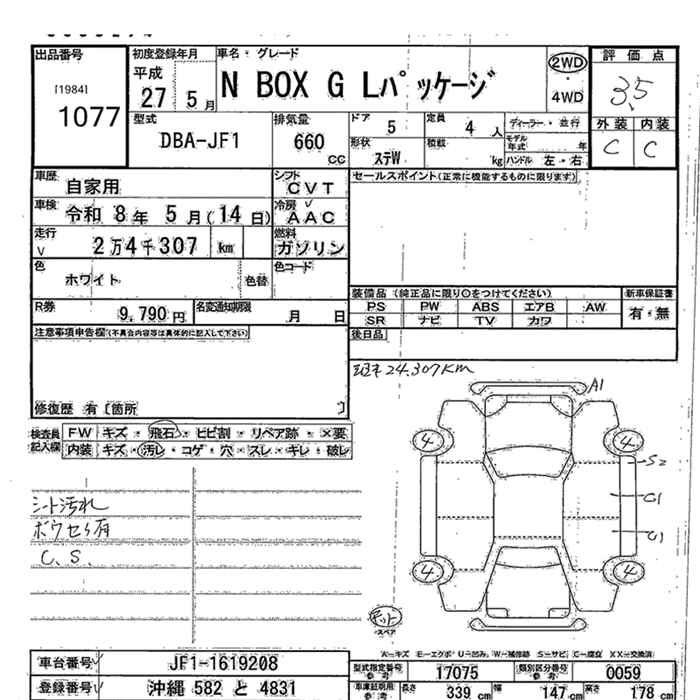 出品番号 初度登録年月 車名・グレード 評価点
[1984] 平成 2WD
1077 27 5月 N BOX G Lパッケージ ・ 3.5
4WD
型式 排気量 ドア 5 定員 4人 ディーラー・並行 外装 内装
DBA-JF1 660 cc 形状 ステW 積載 kg モデル年式 年 C C
ハンドル 左・右
車歴 自家用 シフト CVT セールスポイント(正常に機能するものに限ります)
車検 令和 8年 5月(14日) 冷房 AAC
走行 2万4千307 km 燃料 ガソリン
色 ホワイト 色替 色コード
装備品 (純正品に限り○をつけてください) 新車保証書
R券 9,790円 名変通知期限 月 日 PS PW ABS エアB AW 有・無
SR ナビ TV カワ
注意事項申告欄(不具合内容等は具体的に記入して下さい) 後日品
24,307KM
修復歴 有 [箇所 ]
検査員記入欄 FW キズ・飛石・ヒビ割・リペア跡・×要
内装 キズ・汚レ・コゲ・穴・スレ・キレ・破レ
A1
4 4
S2
C1
C1
4 4
シート汚れ
ボウセイ有
C.S.
キット
スペア
A-キズ E-エクボ U-凹み W-補修跡 S-サビ C-腐食 XX-交換済
車台番号 JF1-1619208 型式指定番号 17075 類別区分番号 0059
登録番号 沖縄 582 と 4831 車庫証明用参考 長さ 339 cm 幅 147 cm 高さ 178 cm